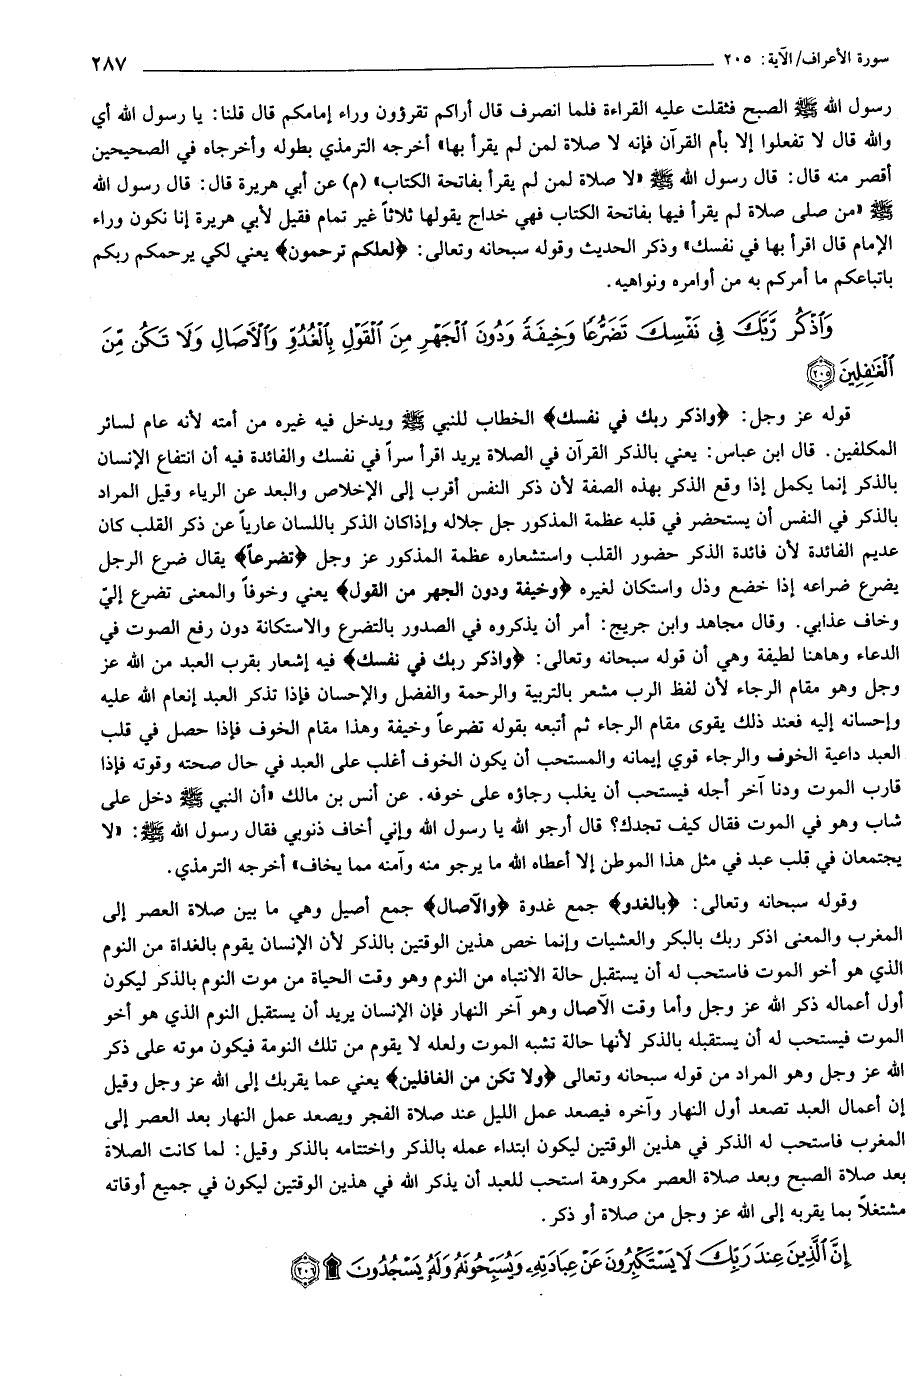 سورة الأعراف/ الآية: ٢٠٥ ٢٨٧
رسول الله ﷺ الصبح فثقلت عليه القراءة فلما انصرف قال أراكم تقرؤون وراء إمامكم قال قلنا: يا رسول الله أي
والله قال لا تفعلوا إلا بأم القرآن فإنه لا صلاة لمن لم يقرأ بها» أخرجه الترمذي بطوله وأخرجاه في الصحيحين
أقصر منه قال: قال رسول الله ﷺ «لا صلاة لمن لم يقرأ بفاتحة الكتاب» (م) عن أبي هريرة قال: قال رسول الله
ﷺ «من صلى صلاة لم يقرأ فيها بفاتحة الكتاب فهي خداج يقولها ثلاثاً غير تمام فقيل لأبي هريرة إنا نكون وراء
الإمام قال اقرأ بها في نفسك» وذكر الحديث وقوله سبحانه وتعالى: ﴿لعلكم ترحمون﴾ يعني لكي يرحمكم ربكم
باتباعكم ما أمركم به من أوامره ونواهيه.
وَٱذْكُر رَّبَّكَ فِي نَفْسِكَ تَضَرُّعًا وَخِيفَةً وَدُونَ ٱلْجَهْرِ مِنَ ٱلْقَوْلِ بِٱلْغُدُوِّ وَٱلْأَصَالِ وَلَا تَكُن مِّنَ
ٱلْغَٰفِلِينَ ﴿٢٠٥﴾
قوله عز وجل: ﴿واذكر ربك في نفسك﴾ الخطاب للنبي ﷺ ويدخل فيه غيره من أمته لأنه عام لسائر
المكلفين. قال ابن عباس: يعني بالذكر القرآن في الصلاة يريد اقرأ سراً في نفسك والفائدة فيه أن انتفاع الإنسان
بالذكر إنما يكمل إذا وقع الذكر بهذه الصفة لأن ذكر النفس أقرب إلى الإخلاص والبعد عن الرياء وقيل المراد
بالذكر في النفس أن يستحضر في قلبه عظمة المذكور جل جلاله وإذاكان الذكر باللسان عارياً عن ذكر القلب كان
عديم الفائدة لأن فائدة الذكر حضور القلب واستشعاره عظمة المذكور عز وجل ﴿تضرعاً﴾ يقال ضرع الرجل
يضرع ضراعه إذا خضع وذل واستكان لغيره ﴿وخيفة ودون الجهر من القول﴾ يعني وخوفاً والمعنى تضرع إليّ
وخاف عذابي. وقال مجاهد وابن جريج: أمر أن يذكروه في الصدور بالتضرع والاستكانة دون رفع الصوت في
الدعاء وهاهنا لطيفة وهي أن قوله سبحانه وتعالى: ﴿واذكر ربك في نفسك﴾ فيه إشعار بقرب العبد من الله عز
وجل وهو مقام الرجاء لأن لفظ الرب مشعر بالتربية والرحمة والفضل والإحسان فإذا تذكر العبد إنعام الله عليه
وإحسانه إليه فعند ذلك يقوى مقام الرجاء ثم أتبعه بقوله تضرعاً وخيفة وهذا مقام الخوف فإذا حصل في قلب
العبد داعية الخوف والرجاء قوي إيمانه والمستحب أن يكون الخوف أغلب على العبد في حال صحته وقوته فإذا
قارب الموت ودنا آخر أجله فيستحب أن يغلب رجاؤه على خوفه. عن أنس بن مالك «أن النبي ﷺ دخل على
شاب وهو في الموت فقال كيف تجدك؟ قال أرجو الله يا رسول الله وإني أخاف ذنوبي فقال رسول الله ﷺ: «لا
يجتمعان في قلب عبد في مثل هذا الموطن إلا أعطاه الله ما يرجو منه وآمنه مما يخاف» أخرجه الترمذي.
وقوله سبحانه وتعالى: ﴿بالغدو﴾ جمع غدوة ﴿والآصال﴾ جمع أصيل وهي ما بين صلاة العصر إلى
المغرب والمعنى اذكر ربك بالبكر والعشيات وإنما خص هذين الوقتين بالذكر لأن الإنسان يقوم بالغداة من النوم
الذي هو أخو الموت فاستحب له أن يستقبل حالة الانتباه من النوم وهو وقت الحياة من موت النوم بالذكر ليكون
أول أعماله ذكر الله عز وجل وأما وقت الآصال وهو آخر النهار فإن الإنسان يريد أن يستقبل النوم الذي هو أخو
الموت فيستحب له أن يستقبله بالذكر لأنها حالة تشبه الموت ولعله لا يقوم من تلك النومة فيكون موته على ذكر
الله عز وجل وهو المراد من قوله سبحانه وتعالى ﴿ولا تكن من الغافلين﴾ يعني عما يقربك إلى الله عز وجل وقيل
إن أعمال العبد تصعد أول النهار وآخره فيصعد عمل الليل عند صلاة الفجر ويصعد عمل النهار بعد العصر إلى
المغرب فاستحب له الذكر في هذين الوقتين ليكون ابتداء عمله بالذكر واختتامه بالذكر وقيل: لما كانت الصلاة
بعد صلاة الصبح وبعد صلاة العصر مكروهة استحب للعبد أن يذكر الله في هذين الوقتين ليكون في جميع أوقاته
مشتغلاً بما يقربه إلى الله عز وجل من صلاة أو ذكر.
إِنَّ ٱلَّذِينَ عِندَ رَبِّكَ لَا يَسْتَكْبِرُونَ عَنْ عِبَادَتِهِۦ وَيُسَبِّحُونَهُۥ وَلَهُۥ يَسْجُدُونَ ۩ ﴿٢٠٦﴾